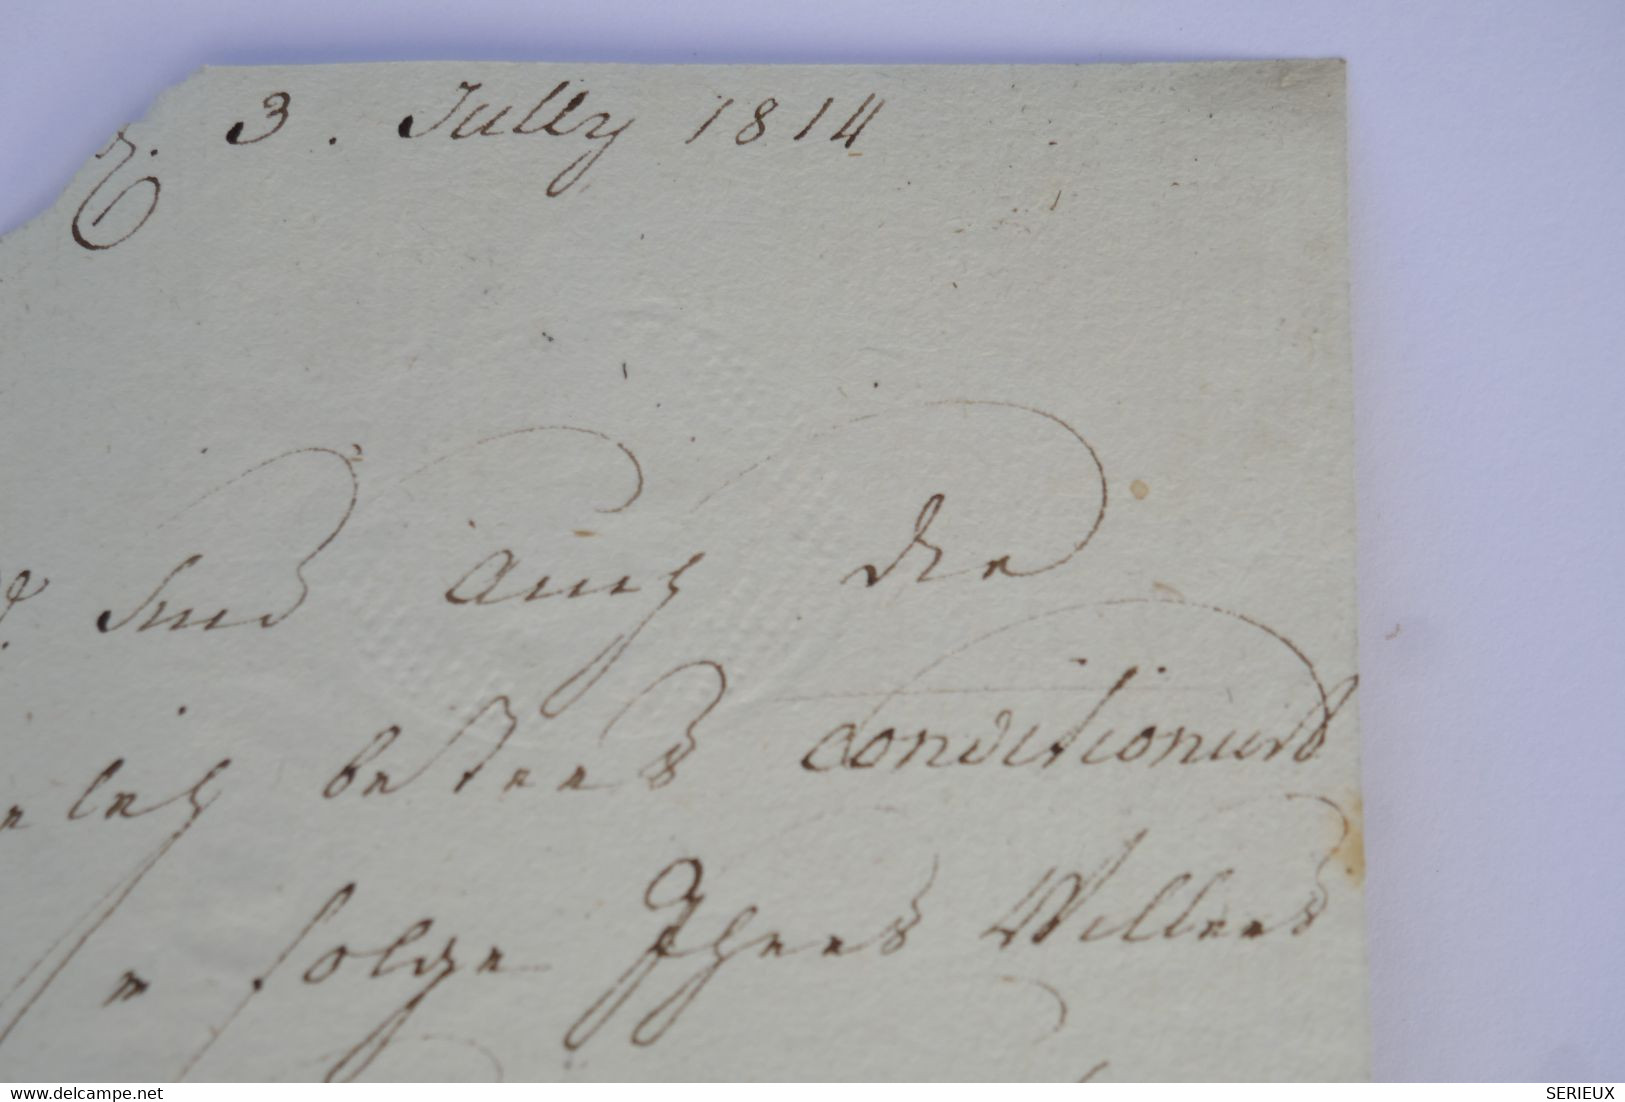 3. Jully 1814
sind auch die
bestens conditionirt
folge Ihres Willens
www.delcampe.net
SERIEUX